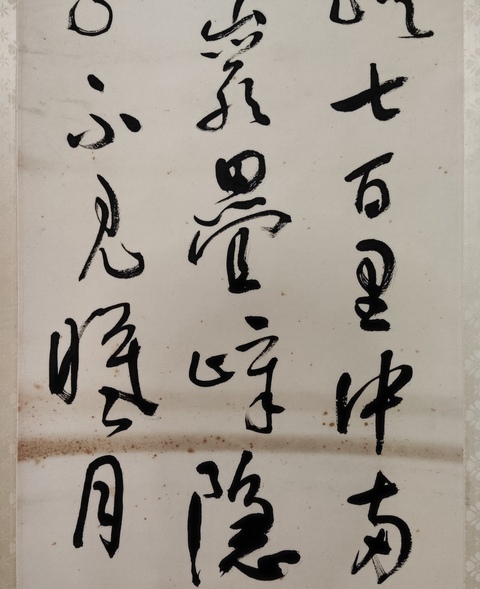 七百里中兩
巖疊嶂隱
不見曦月